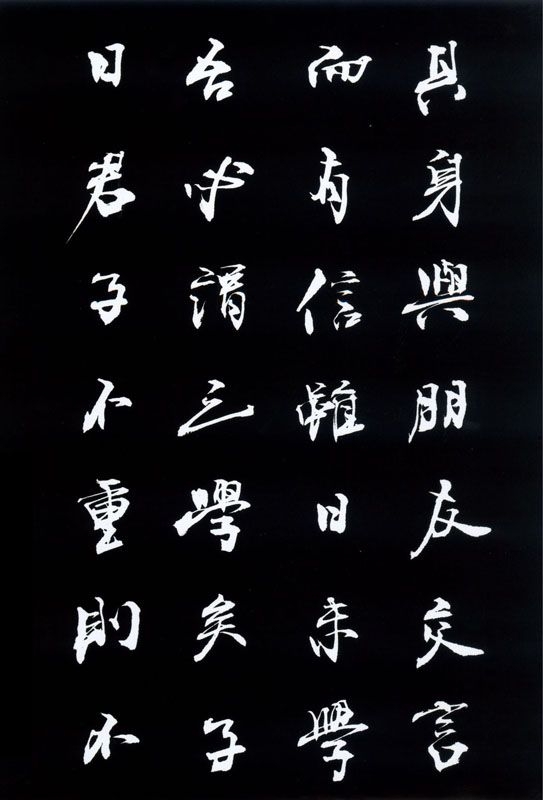 其身與朋友交言
而有信雖曰未學
吾必謂之學矣子
曰君子不重則不